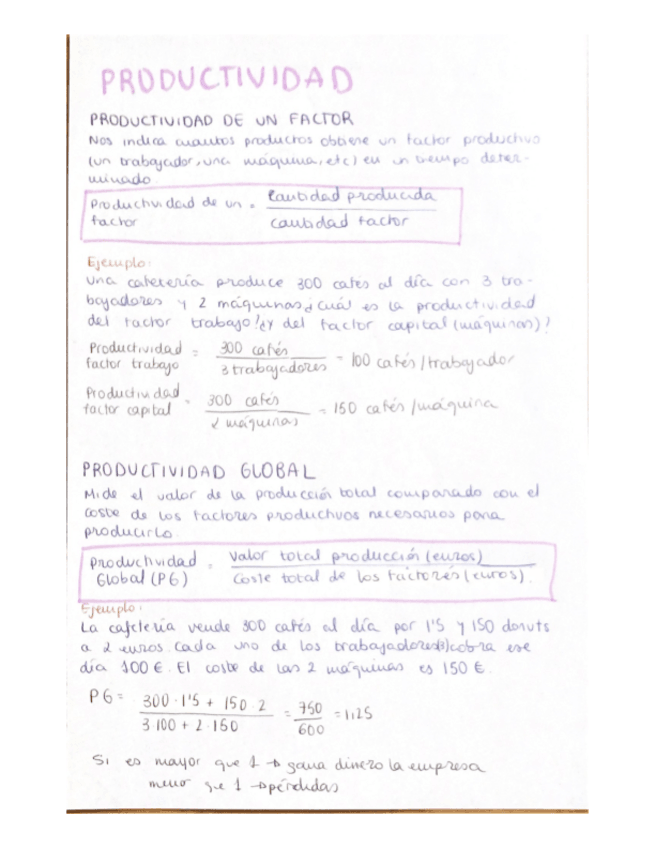 PRODUCTIVIDAD
PRODUCTIVIDAD DE UN FACTOR
Nos indica cuantos productos obtiene un factor productivo
(un trabajador, una máquina, etc) en un tiempo deter-
minado.
Productividad de un factor = Cantidad producida / cantidad factor
Ejemplo:
Una cafetería produce 300 cafés al día con 3 tra-
bajadores y 2 máquinas ¿cuál es la productividad
del factor trabajo? ¿Y del factor capital (máquinas)?
Productividad factor trabajo = 300 cafés / 3 trabajadores = 100 cafés / trabajador
Productividad factor capital = 300 cafés / 2 máquinas = 150 cafés / máquina
PRODUCTIVIDAD GLOBAL
Mide el valor de la producción total comparado con el
coste de los factores productivos necesarios para
producirlo.
Productividad Global (PG) = Valor total producción (euros) / Coste total de los factores (euros).
Ejemplo:
La cafetería vende 300 cafés al día por 1'5 y 150 donuts
a 2 euros. Cada uno de los trabajadores(3) cobra ese
día 100 €. El coste de las 2 máquinas es 150 €.
PG = 300 · 1'5 + 150 · 2 / 3·100 + 2·150 = 750 / 600 = 1,25
Si es mayor que 1 → gana dinero la empresa
menor que 1 → pérdidas